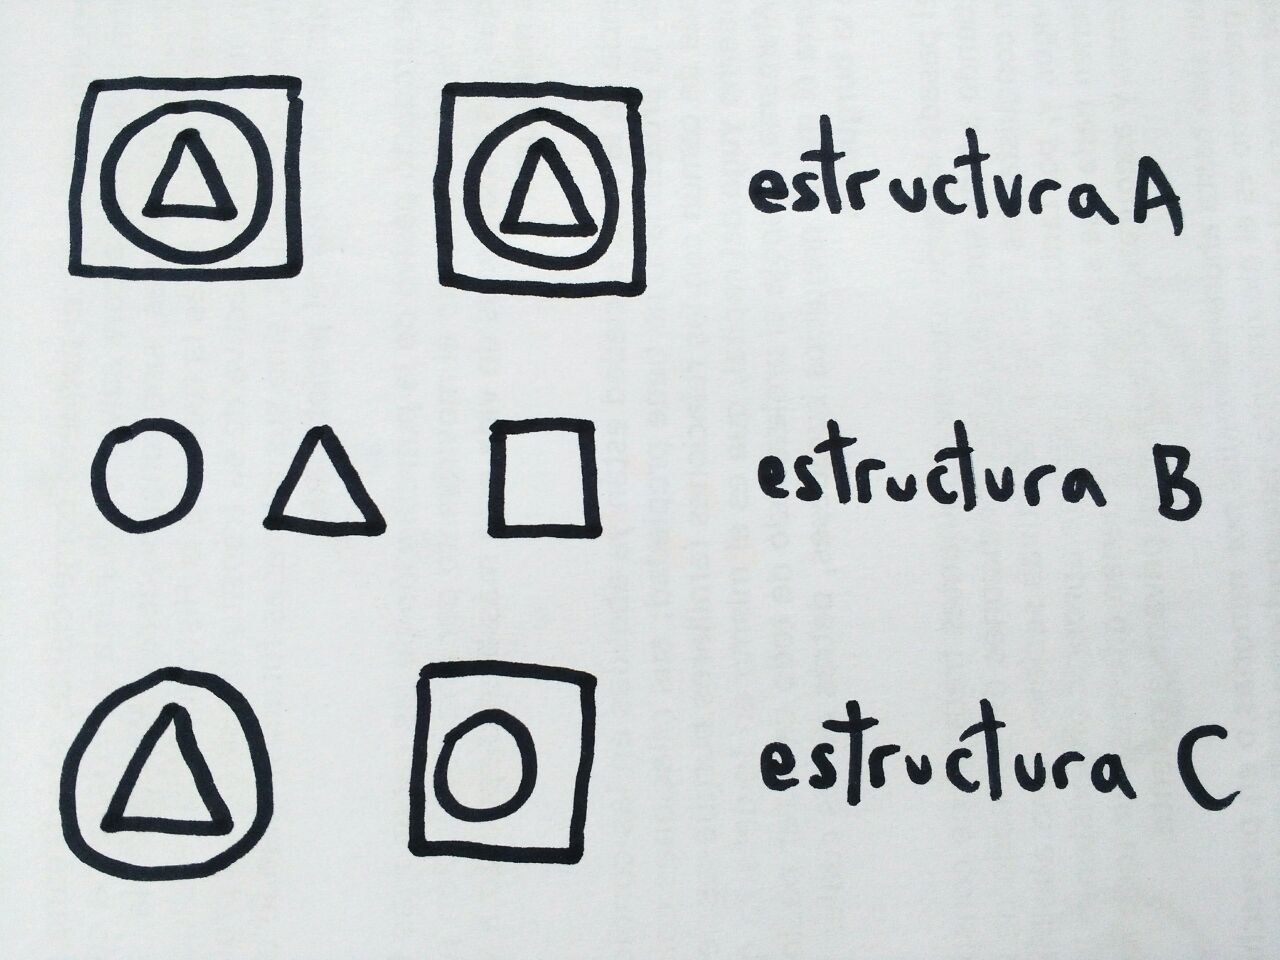 estructura A
estructura B
estructura C